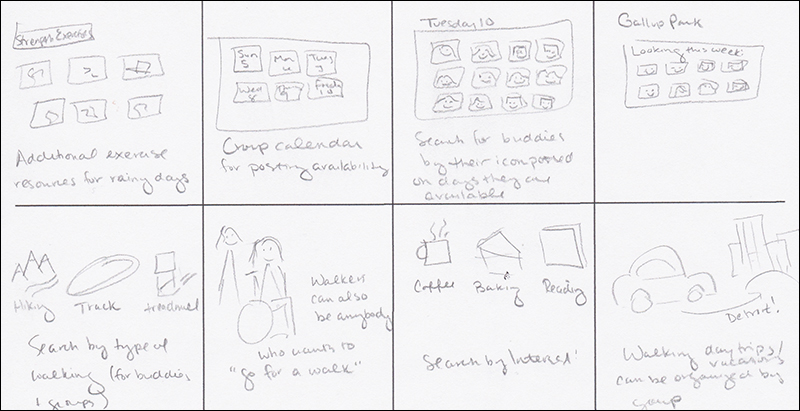 Strength Exercises
Additional exercise
resources for rainy days
Sun Mon Tues
5
Wed
8
Group calendar
for posting availability
Tuesday 10
Search for buddies
by their icon posted
on days they are
available
Gallup Park
Looking this week:
Hiking Track treadmill
Search by type of
walking (for buddies
groups)
Walkers
can also
be anybody
who wants to
"go for a walk"
Coffee Baking Reading
Search by Interest
Detroit!
Walking day trips/
vacations
can be organized by
group